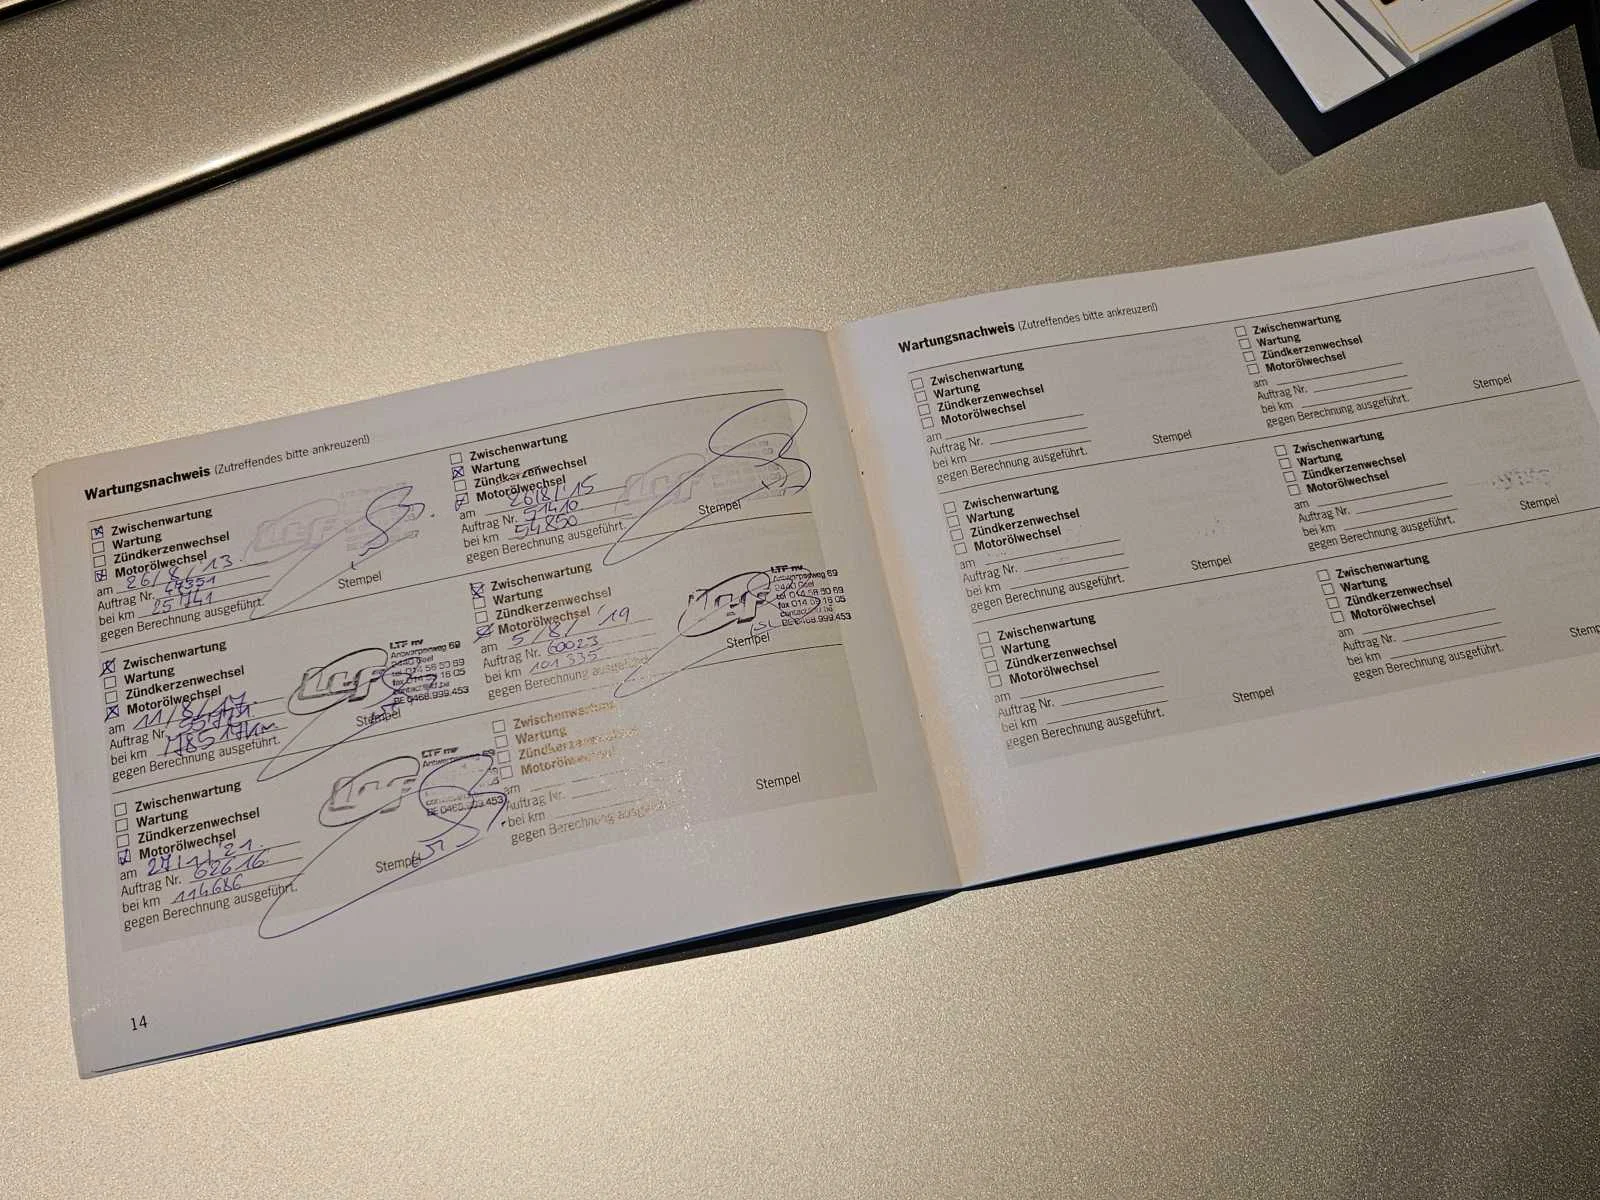 Wartungsnachweis (Zutreffendes bitte ankreuzen!)
Zwischenwartung
Wartung
Zündkerzenwechsel
Motorölwechsel
am 26/8/'13
Auftrag Nr.
bei km 25741
gegen Berechnung ausgeführt.
Stempel
Zwischenwartung
Wartung
Zündkerzenwechsel
Motorölwechsel
am 26/8/'15
Auftrag Nr. 51410
bei km 54850
gegen Berechnung ausgeführt.
Stempel
Zwischenwartung
Wartung
Zündkerzenwechsel
Motorölwechsel
am 11/8/'17
Auftrag Nr.
bei km
gegen Berechnung ausgeführt.
LTF nv
Antwerpseweg 69
2440 Geel
tel 014 58 50 69
fax 014 59 16 05
BE 0468.999.453
Stempel
Zwischenwartung
Wartung
Zündkerzenwechsel
Motorölwechsel
am 5/8/'19
Auftrag Nr. 60023
bei km 101335
gegen Berechnung ausgeführt.
LTF nv
Antwerpseweg 69
2440 Geel
tel 014 58 50 69
fax 014 59 16 05
BE 0468.999.453
Stempel
Zwischenwartung
Wartung
Zündkerzenwechsel
Motorölwechsel
am 27/1/'21
Auftrag Nr. 62616
bei km 114686
gegen Berechnung ausgeführt.
LTF nv
Stempel
Zwischenwartung
Wartung
Zündkerzenwechsel
Motorölwechsel
am
Auftrag Nr.
bei km
gegen Berechnung ausgeführt.
Stempel
14
Wartungsnachweis (Zutreffendes bitte ankreuzen!)
Zwischenwartung
Wartung
Zündkerzenwechsel
Motorölwechsel
am
Auftrag Nr.
bei km
gegen Berechnung ausgeführt.
Stempel
Zwischenwartung
Wartung
Zündkerzenwechsel
Motorölwechsel
am
Auftrag Nr.
bei km
gegen Berechnung ausgeführt.
Stempel
Zwischenwartung
Wartung
Zündkerzenwechsel
Motorölwechsel
am
Auftrag Nr.
bei km
gegen Berechnung ausgeführt.
Stempel
Zwischenwartung
Wartung
Zündkerzenwechsel
Motorölwechsel
am
Auftrag Nr.
bei km
gegen Berechnung ausgeführt.
Stempel
Zwischenwartung
Wartung
Zündkerzenwechsel
Motorölwechsel
am
Auftrag Nr.
bei km
gegen Berechnung ausgeführt.
Stempel
Zwischenwartung
Wartung
Zündkerzenwechsel
Motorölwechsel
am
Auftrag Nr.
bei km
gegen Berechnung ausgeführt.
Stemp